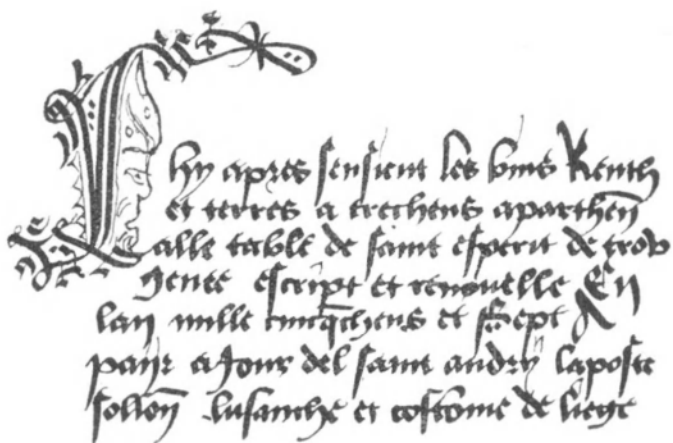 Chy apres sensieut les biens Renth
et terres a trechens aparthen
alle table de saint esperit de trov
gnee escript et renouvelle En
lan mille cincqchens et sept A
paijr a Jour del saint andry lapostle
sollon lusanche et costome de liege